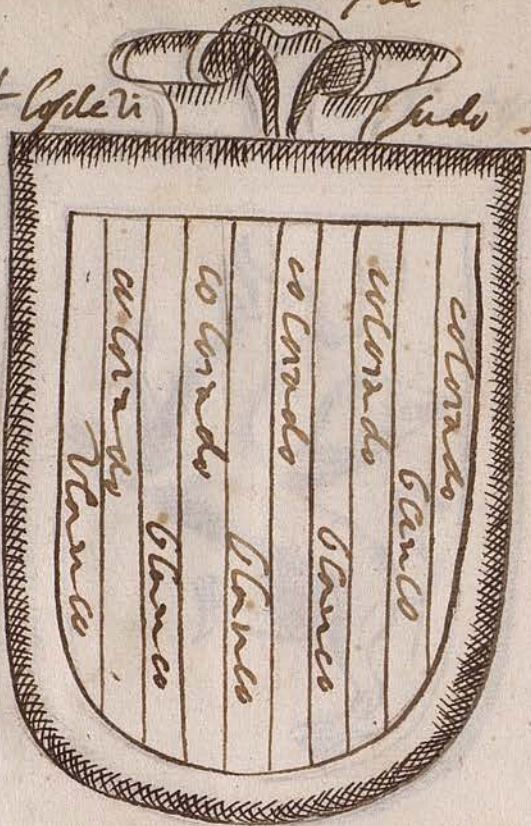 colorado
blanco
colorado
blanco
colorado
blanco
colorado
blanco
colorado
blanco